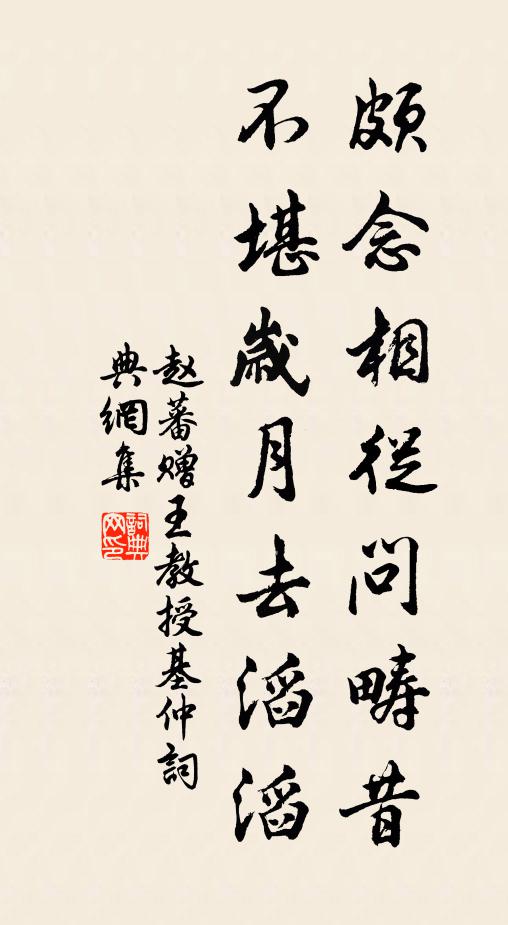 頗念相從問疇昔
不堪歲月去滔滔
赵蕃赠王教授基仲詞
典網集
詞典网印